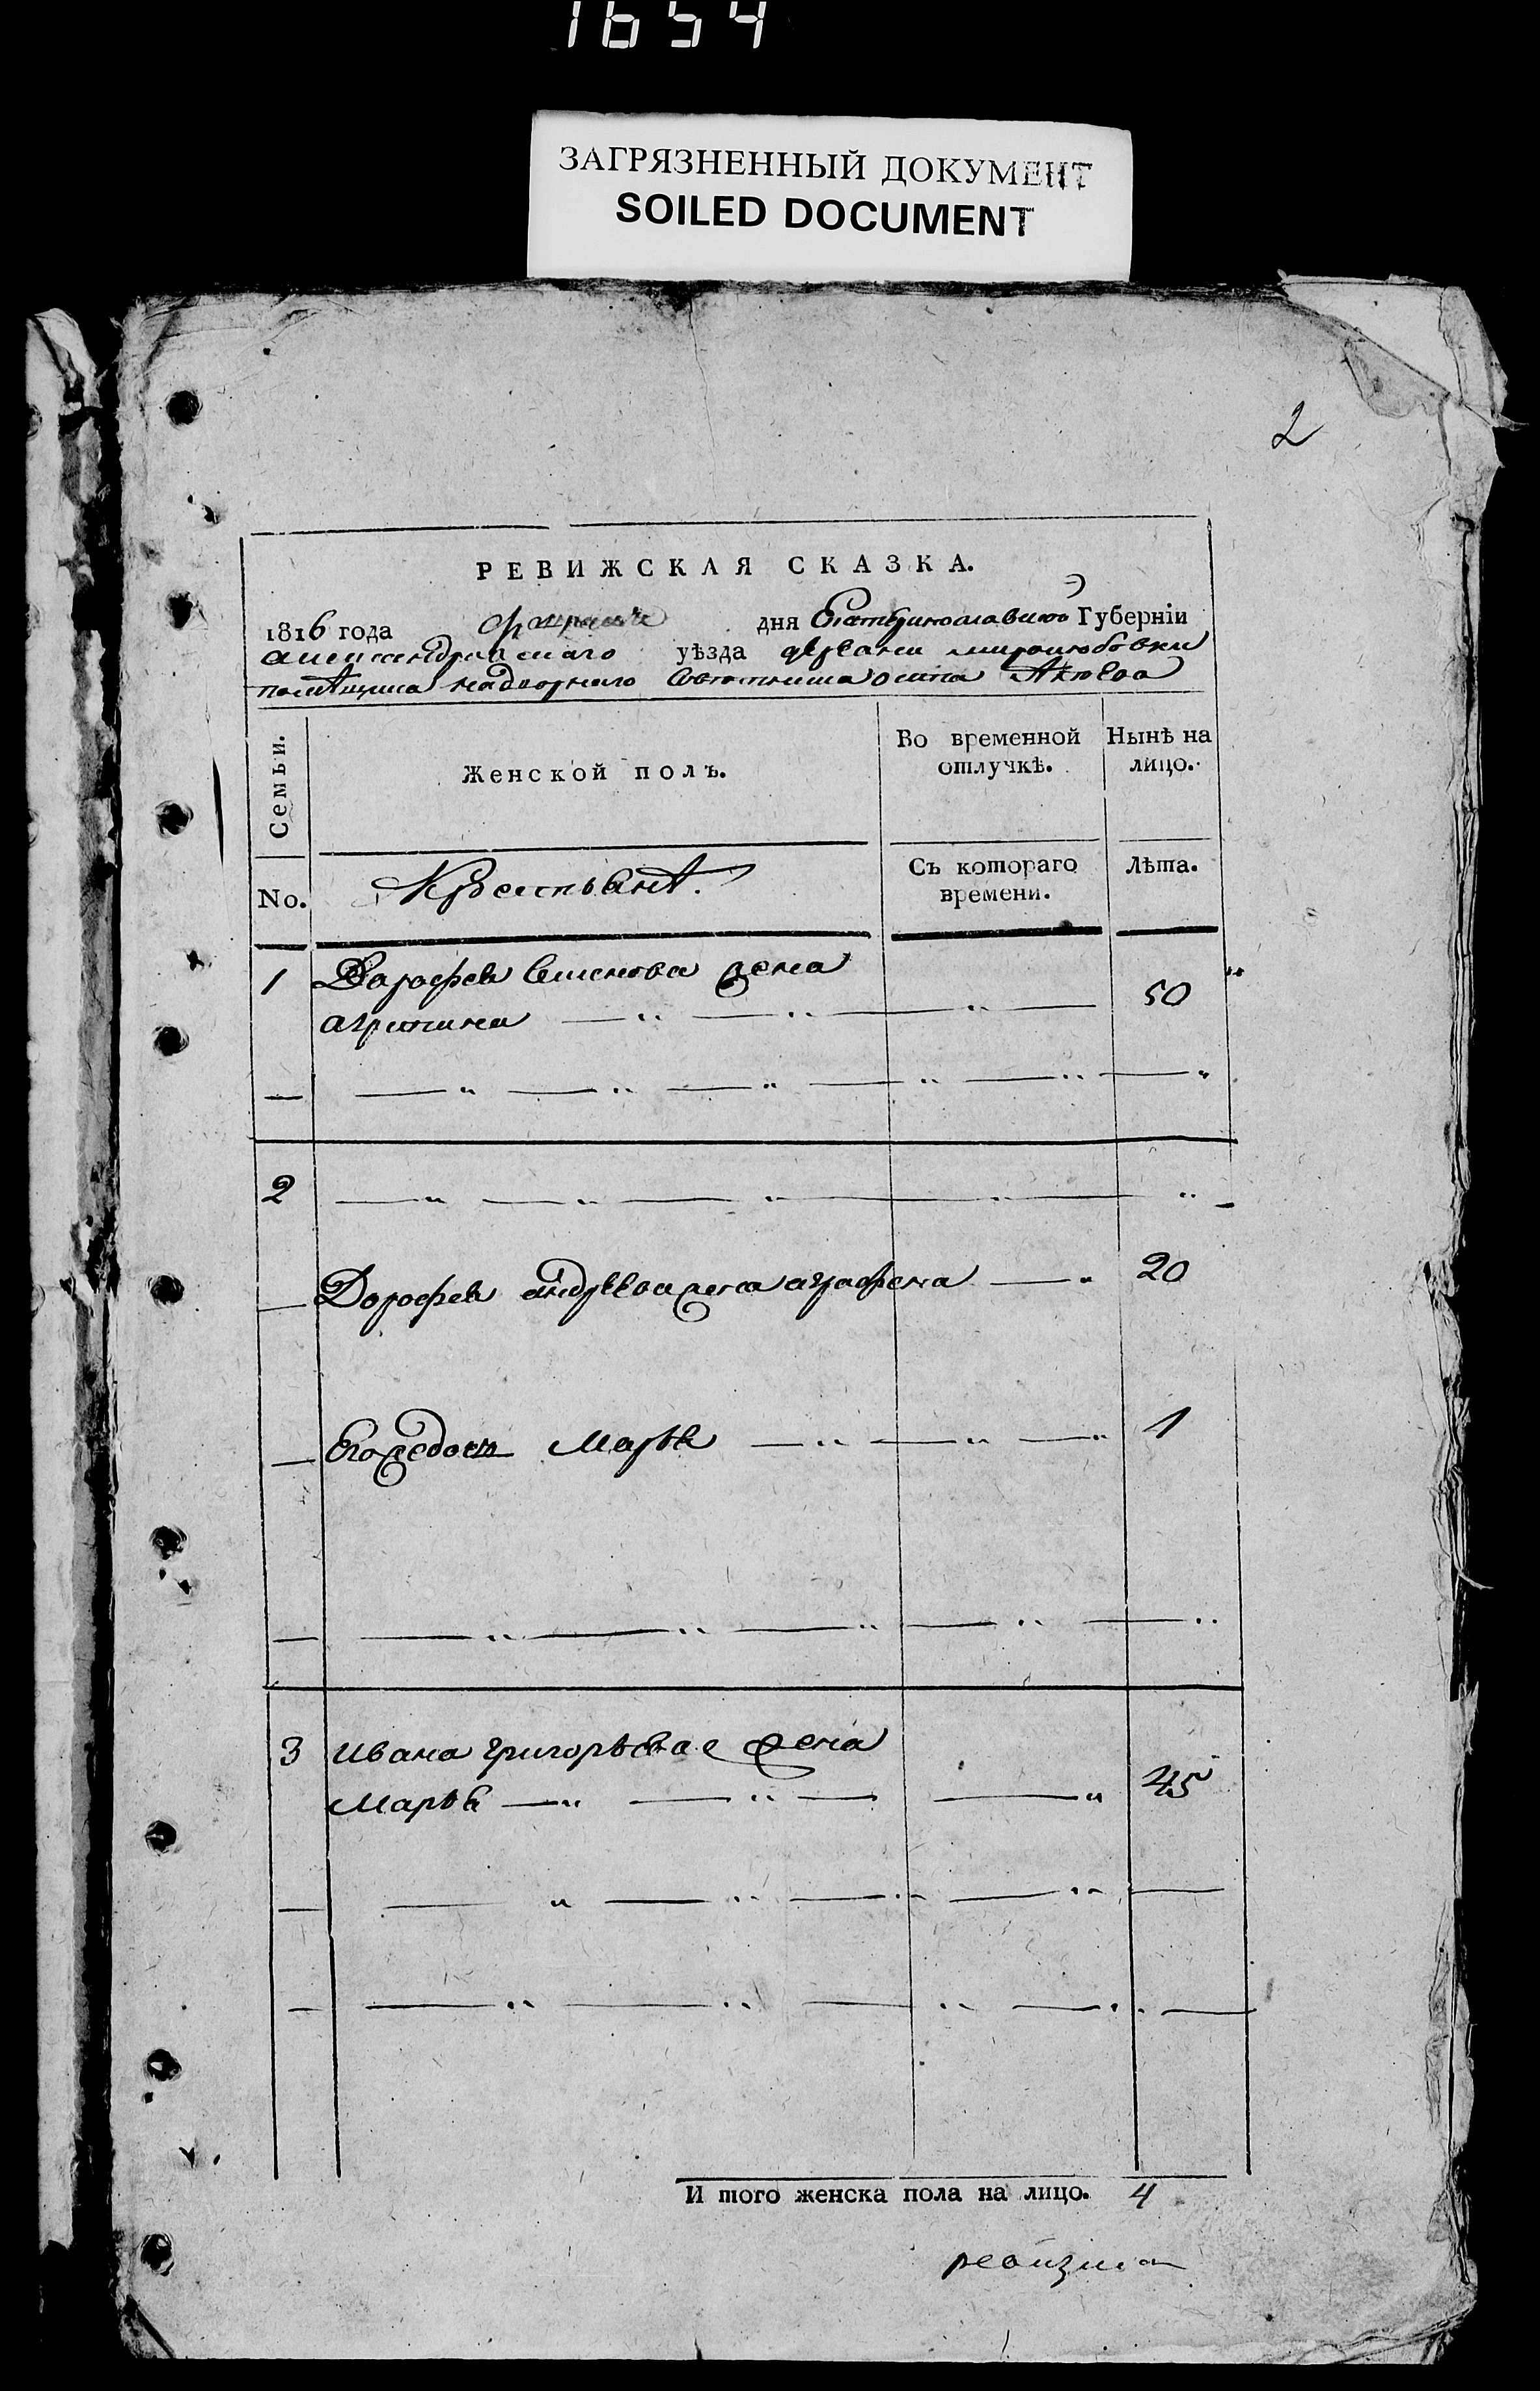 1654
ЗАГРЯЗНЕННЫЙ ДОКУМЕНТ
SOILED DOCUMENT
2
РЕВИЖСКАЯ СКАЗКА.
1816 года дня Екатеринославской Губернїи
александрийскаго уѣзда деревни миролюбовки
помѣщика надворнаго Советника осипа
Семьи.
Женской полъ.
Во временной отлучкѣ.
Нынѣ на лицо.
No.
Крестьянѣ.
Съ котораго времени.
Лѣта.
1 Дорофея Семенова жена
агрипина 50
2
Дорофея андреева жена аграфена 20
Его дочь Марья 1
3 Ивана григорьева жена
Марья 45
И того женска пола на лицо. 4